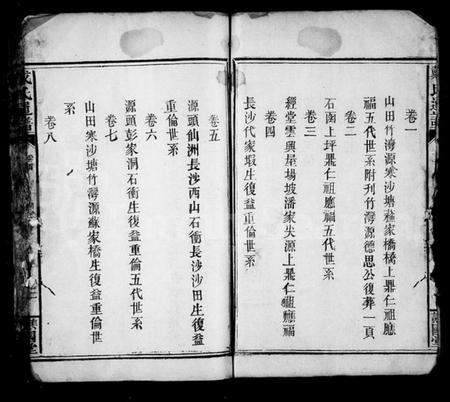 卷一
山田竹灣源寒沙塘蘇家橋橋上鼎仁祖應
福五代世系附刊竹灣源德思公復葬一頁
卷二
石函上坪鼎仁祖應福五代世系
卷三
經堂雲與屋場坡潘家尖源上鼎仁祖應福
卷四
長沙代家塅生復益重倫世系
卷五
源頭仙洲長沙西山石衝長沙沙田生復益
重倫世系
卷六
源頭彭家洞石衝生復益重倫五代世系
卷七
山田寒沙塘竹灣源蘇家橋生復益重倫世
系
卷八